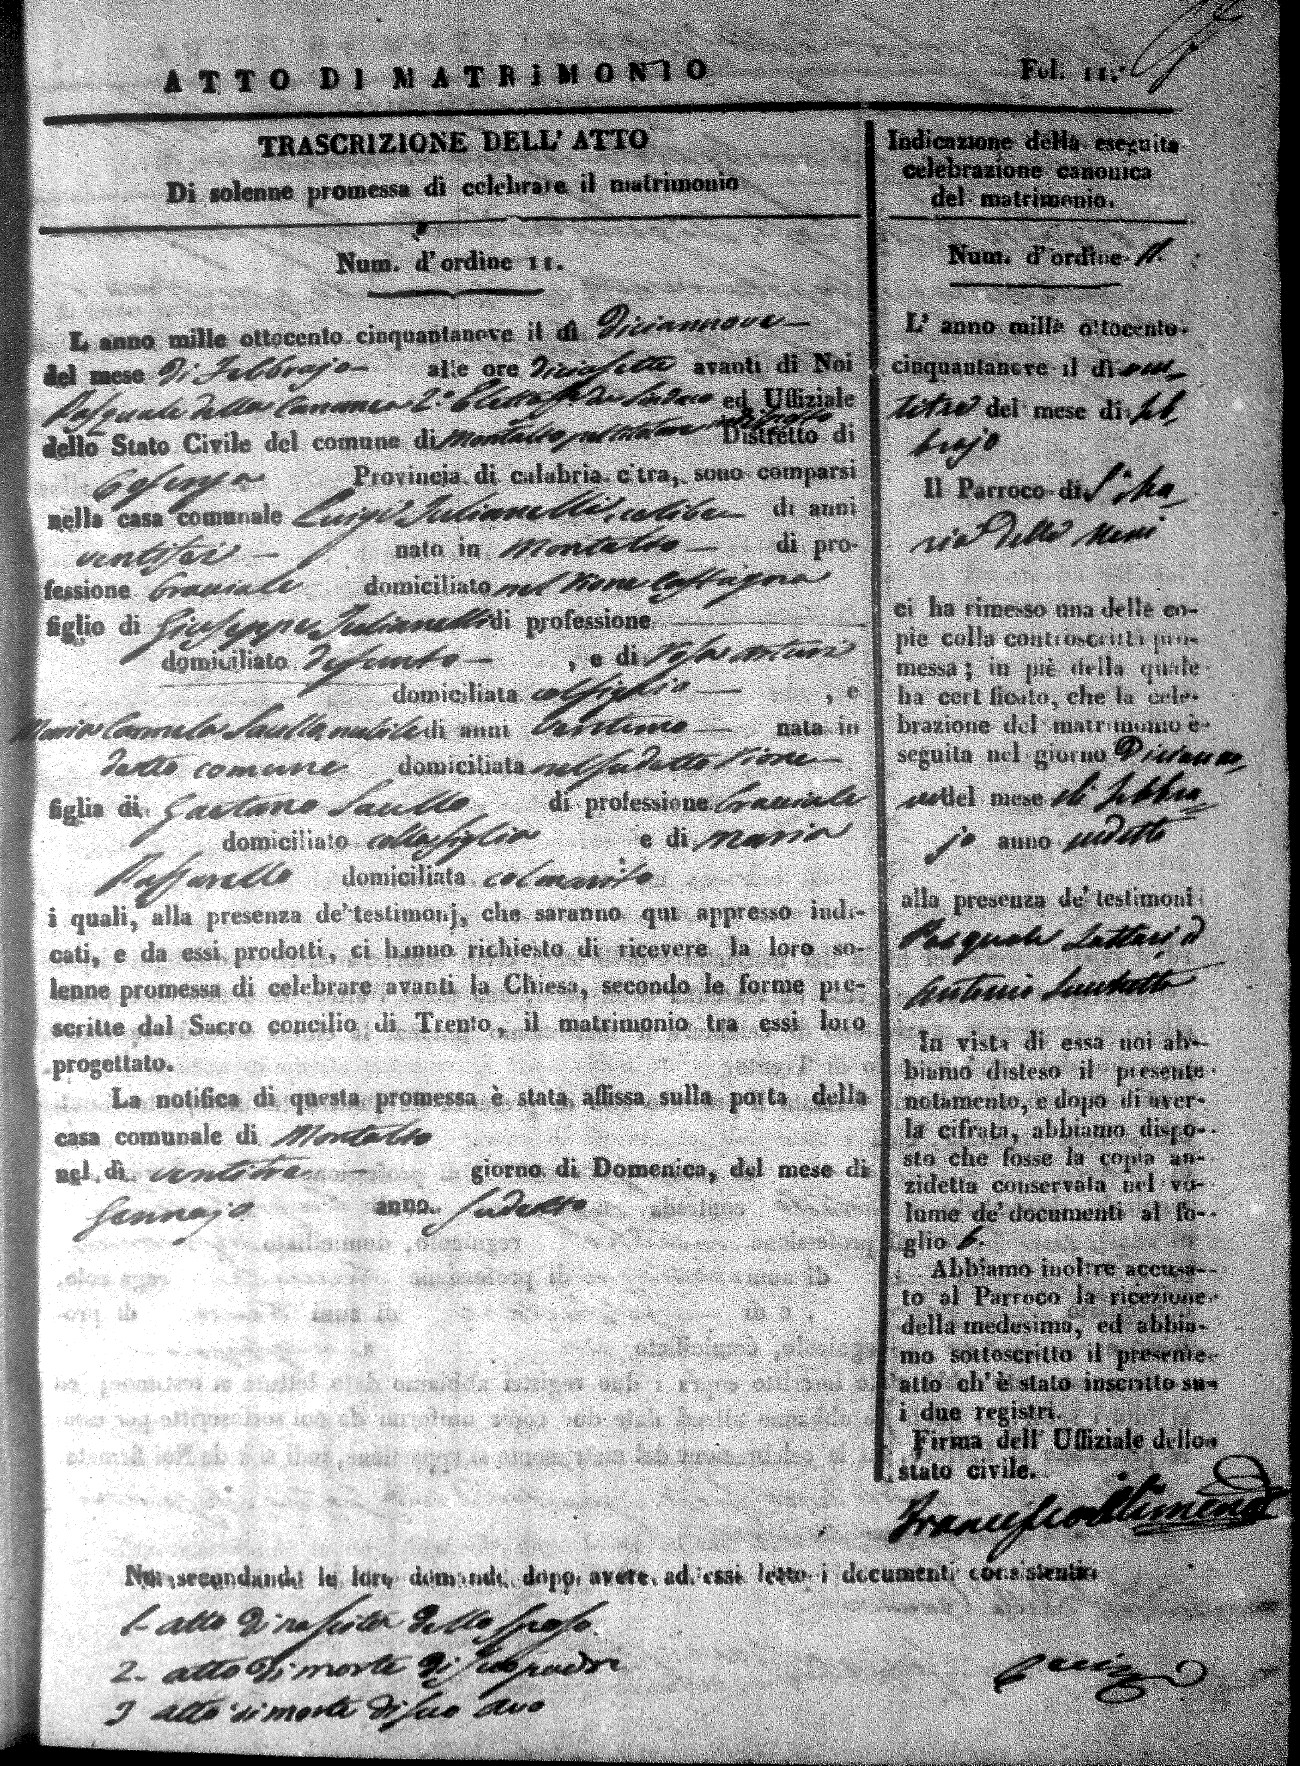 ATTO DI MATRIMONIO
Fol. 11.
TRASCRIZIONE DELL' ATTO
Di solenne promessa di celebrare il matrimonio
Num. d'ordine 11.
L anno mille ottocento cinquantanove il dì Diciannove
del mese di Febbrajo alle ore diciasette avanti di Noi
Pasquale della Cananea 2.° Eletto ed Uffiziale
dello Stato Civile del comune di Montalto Distretto di
Cosenza Provincia di calabria citra, sono comparsi
nella casa comunale Luigi Julianelli celibe di anni
ventisei nato in Montalto di pro-
fessione bracciale domiciliato nel Rione
figlio di Giuseppe Julianelli di professione
domiciliato defunto , e di
domiciliata col figlio , e
Maria Carmela Saullo nubile di anni ventuno nata in
detto comune domiciliata nel sudetto Rione
figlia di Gaetano Saullo di professione bracciale
domiciliato colla figlia e di Maria
Passarello domiciliata col marito
i quali, alla presenza de' testimonj, che saranno qui appresso indi-
cati, e da essi prodotti, ci hanno richiesto di ricevere la loro so-
lenne promessa di celebrare avanti la Chiesa, secondo le forme pre-
scritte dal Sacro concilio di Trento, il matrimonio tra essi loro
progettato.
La notifica di questa promessa è stata affissa sulla porta della
casa comunale di Montalto
nel dì ventitre giorno di Domenica, del mese di
Gennajo anno Sudetto
Indicazione della eseguita
celebrazione canonica
del matrimonio.
Num. d'ordine 11.
L' anno mille ottocento-
cinquantanove il dì ven
titre del mese di feb
brajo
Il Parroco di S. Ma
ria della Neve
ci ha rimesso una delle co-
pie colla controscritta pro-
messa; in piè della quale
ha certificato, che la cele-
brazione del matrimonio è
seguita nel giorno Dicianno
ve del mese di Febbra
jo anno sudetto
alla presenza de' testimoni
Pasquale Lattari ed
Antonio
In vista di essa noi ab-
biamo disteso il presente
notamento, e dopo di aver-
la cifrata, abbiamo dispo-
sto che fosse la copia an-
zidetta conservata nel vo-
lume de' documenti al fo-
glio 6.
Abbiamo inoltre accusa-
to al Parroco la ricezione
della medesima, ed abbia-
mo sottoscritto il presente
atto ch' è stato inscritto su-
i due registri.
Firma dell' Uffiziale dello
stato civile.
Francesco Alimena
Noi secondando le loro domande, dopo avere ad essi letto i documenti consistenti:
1- atto di nascita dello sposo.
2- atto di morte di suo padre
3 atto di morte di suo avo